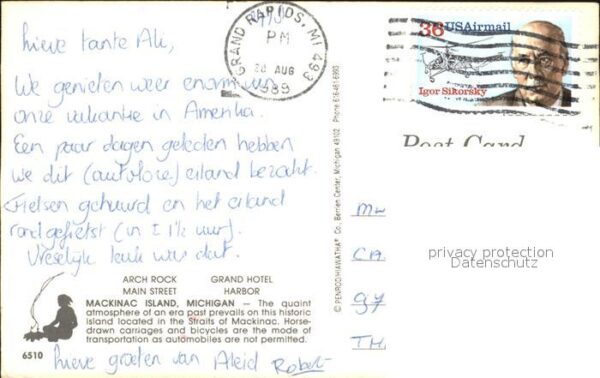 lieve tante Ali,
We genieten weer enorm van
onze vakantie in Amerika.
Een paar dagen geleden hebben
we dit (autoloze) eiland bezocht.
Fietsen gehuurd en het eiland
rond gefietst (in ± 1½ uur).
Vreselijk leuk was dat.
ARCH ROCK GRAND HOTEL
MAIN STREET HARBOR
MACKINAC ISLAND, MICHIGAN — The quaint
atmosphere of an era past prevails on this historic
island located in the Straits of Mackinac. Horse-
drawn carriages and bicycles are the mode of
transportation as automobiles are not permitted.
6510
lieve groeten van Aleid Robert
GRAND RAPIDS, MI 493
PM
28 AUG
1989
36 USAirmail
Igor Sikorsky
Post Card
© PENROD/HIAWATHA Co., Berrien Center, Michigan 49102 Phone 616-461-6993
Mw
CA
97
TH
privacy protection
Datenschutz